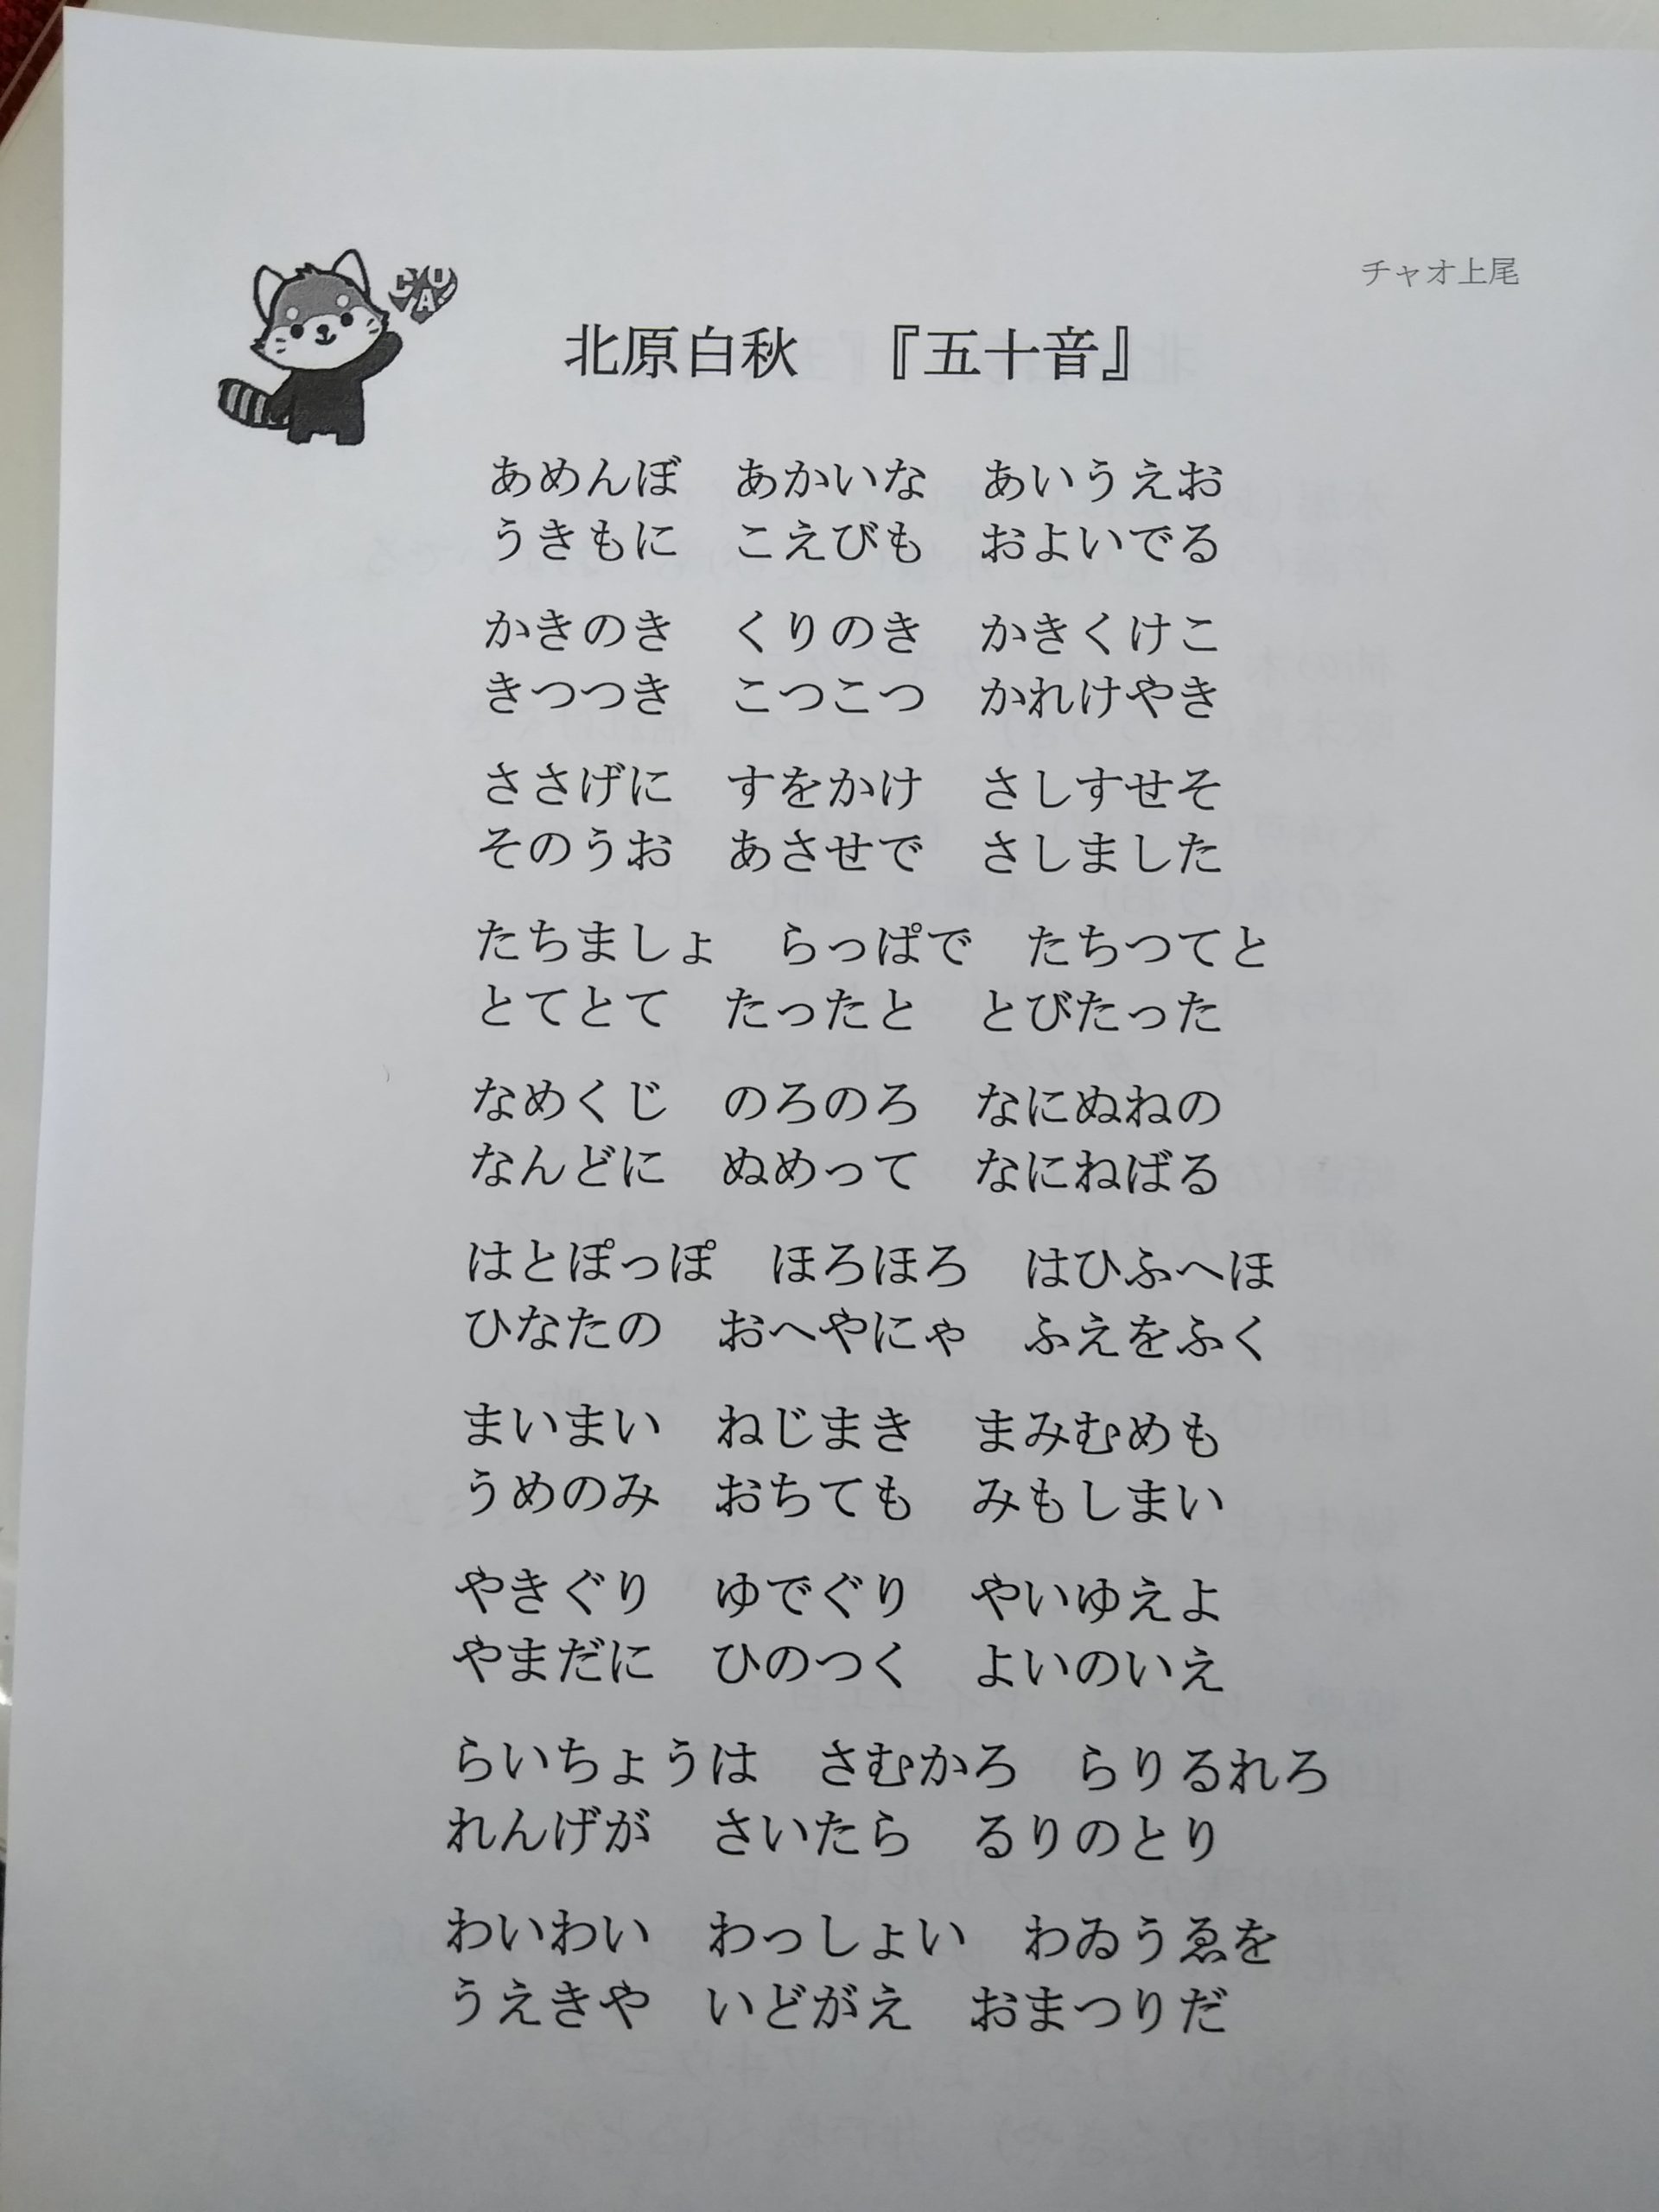 チャオ上尾
CIAO!
北原白秋　『五十音』
あめんぼ　あかいな　あいうえお
うきもに　こえびも　およいでる
かきのき　くりのき　かきくけこ
きつつき　こつこつ　かれけやき
ささげに　すをかけ　さしすせそ
そのうお　あさせで　さしました
たちましょ　らっぱで　たちつてと
とてとて　たったと　とびたった
なめくじ　のろのろ　なにぬねの
なんどに　ぬめって　なにねばる
はとぽっぽ　ほろほろ　はひふへほ
ひなたの　おへやにゃ　ふえをふく
まいまい　ねじまき　まみむめも
うめのみ　おちても　みもしまい
やきぐり　ゆでぐり　やいゆえよ
やまだに　ひのつく　よいのいえ
らいちょうは　さむかろ　らりるれろ
れんげが　さいたら　るりのとり
わいわい　わっしょい　わゐうゑを
うえきや　いどがえ　おまつりだ